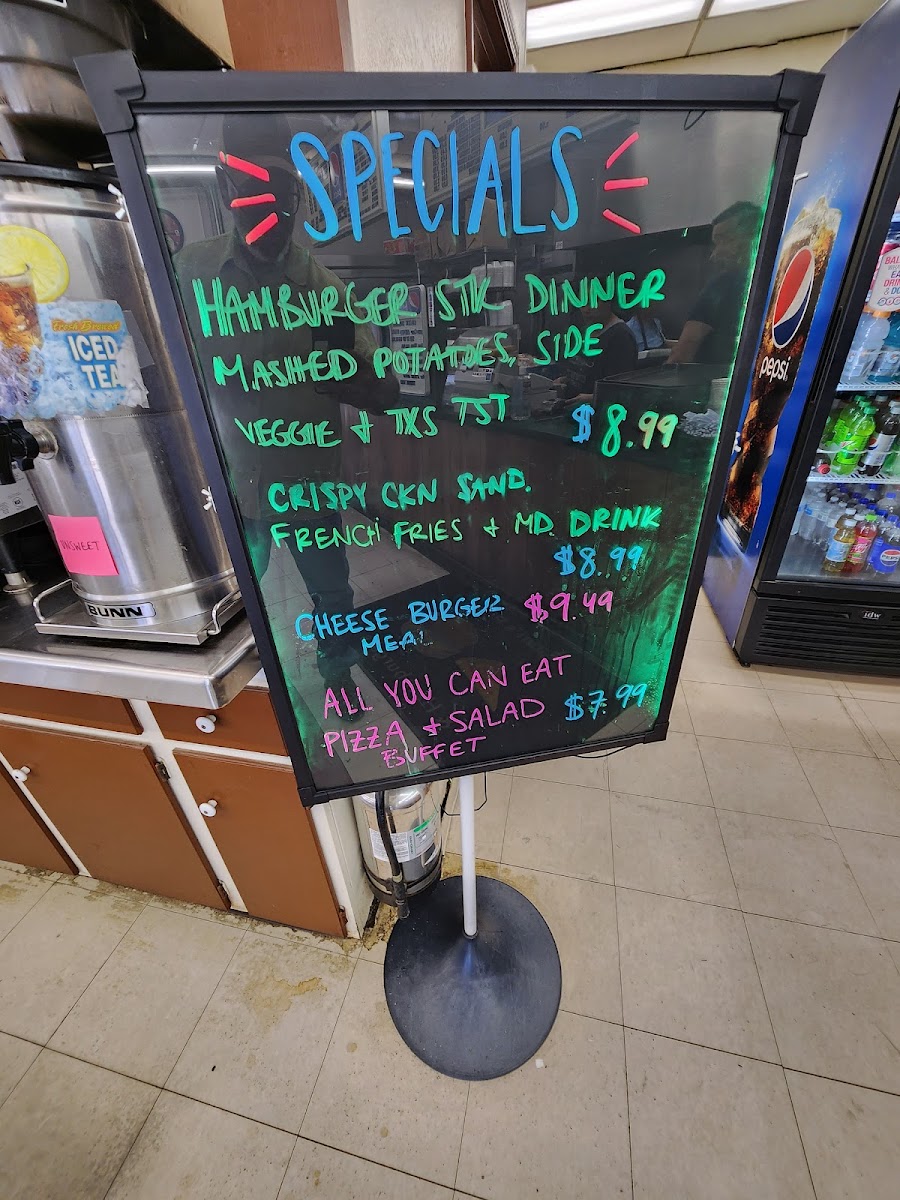 SPECIALS
HAMBURGER STK DINNER
MASHED POTATOES, SIDE
VEGGIE & TXS TST $8.99
CRISPY CKN SAND.
FRENCH FRIES & MD. DRINK
$8.99
CHEESE BURGER $9.49
MEAL
ALL YOU CAN EAT
PIZZA & SALAD $7.99
BUFFET
ICED
TEA
UNSWEET
BUNN
pepsi